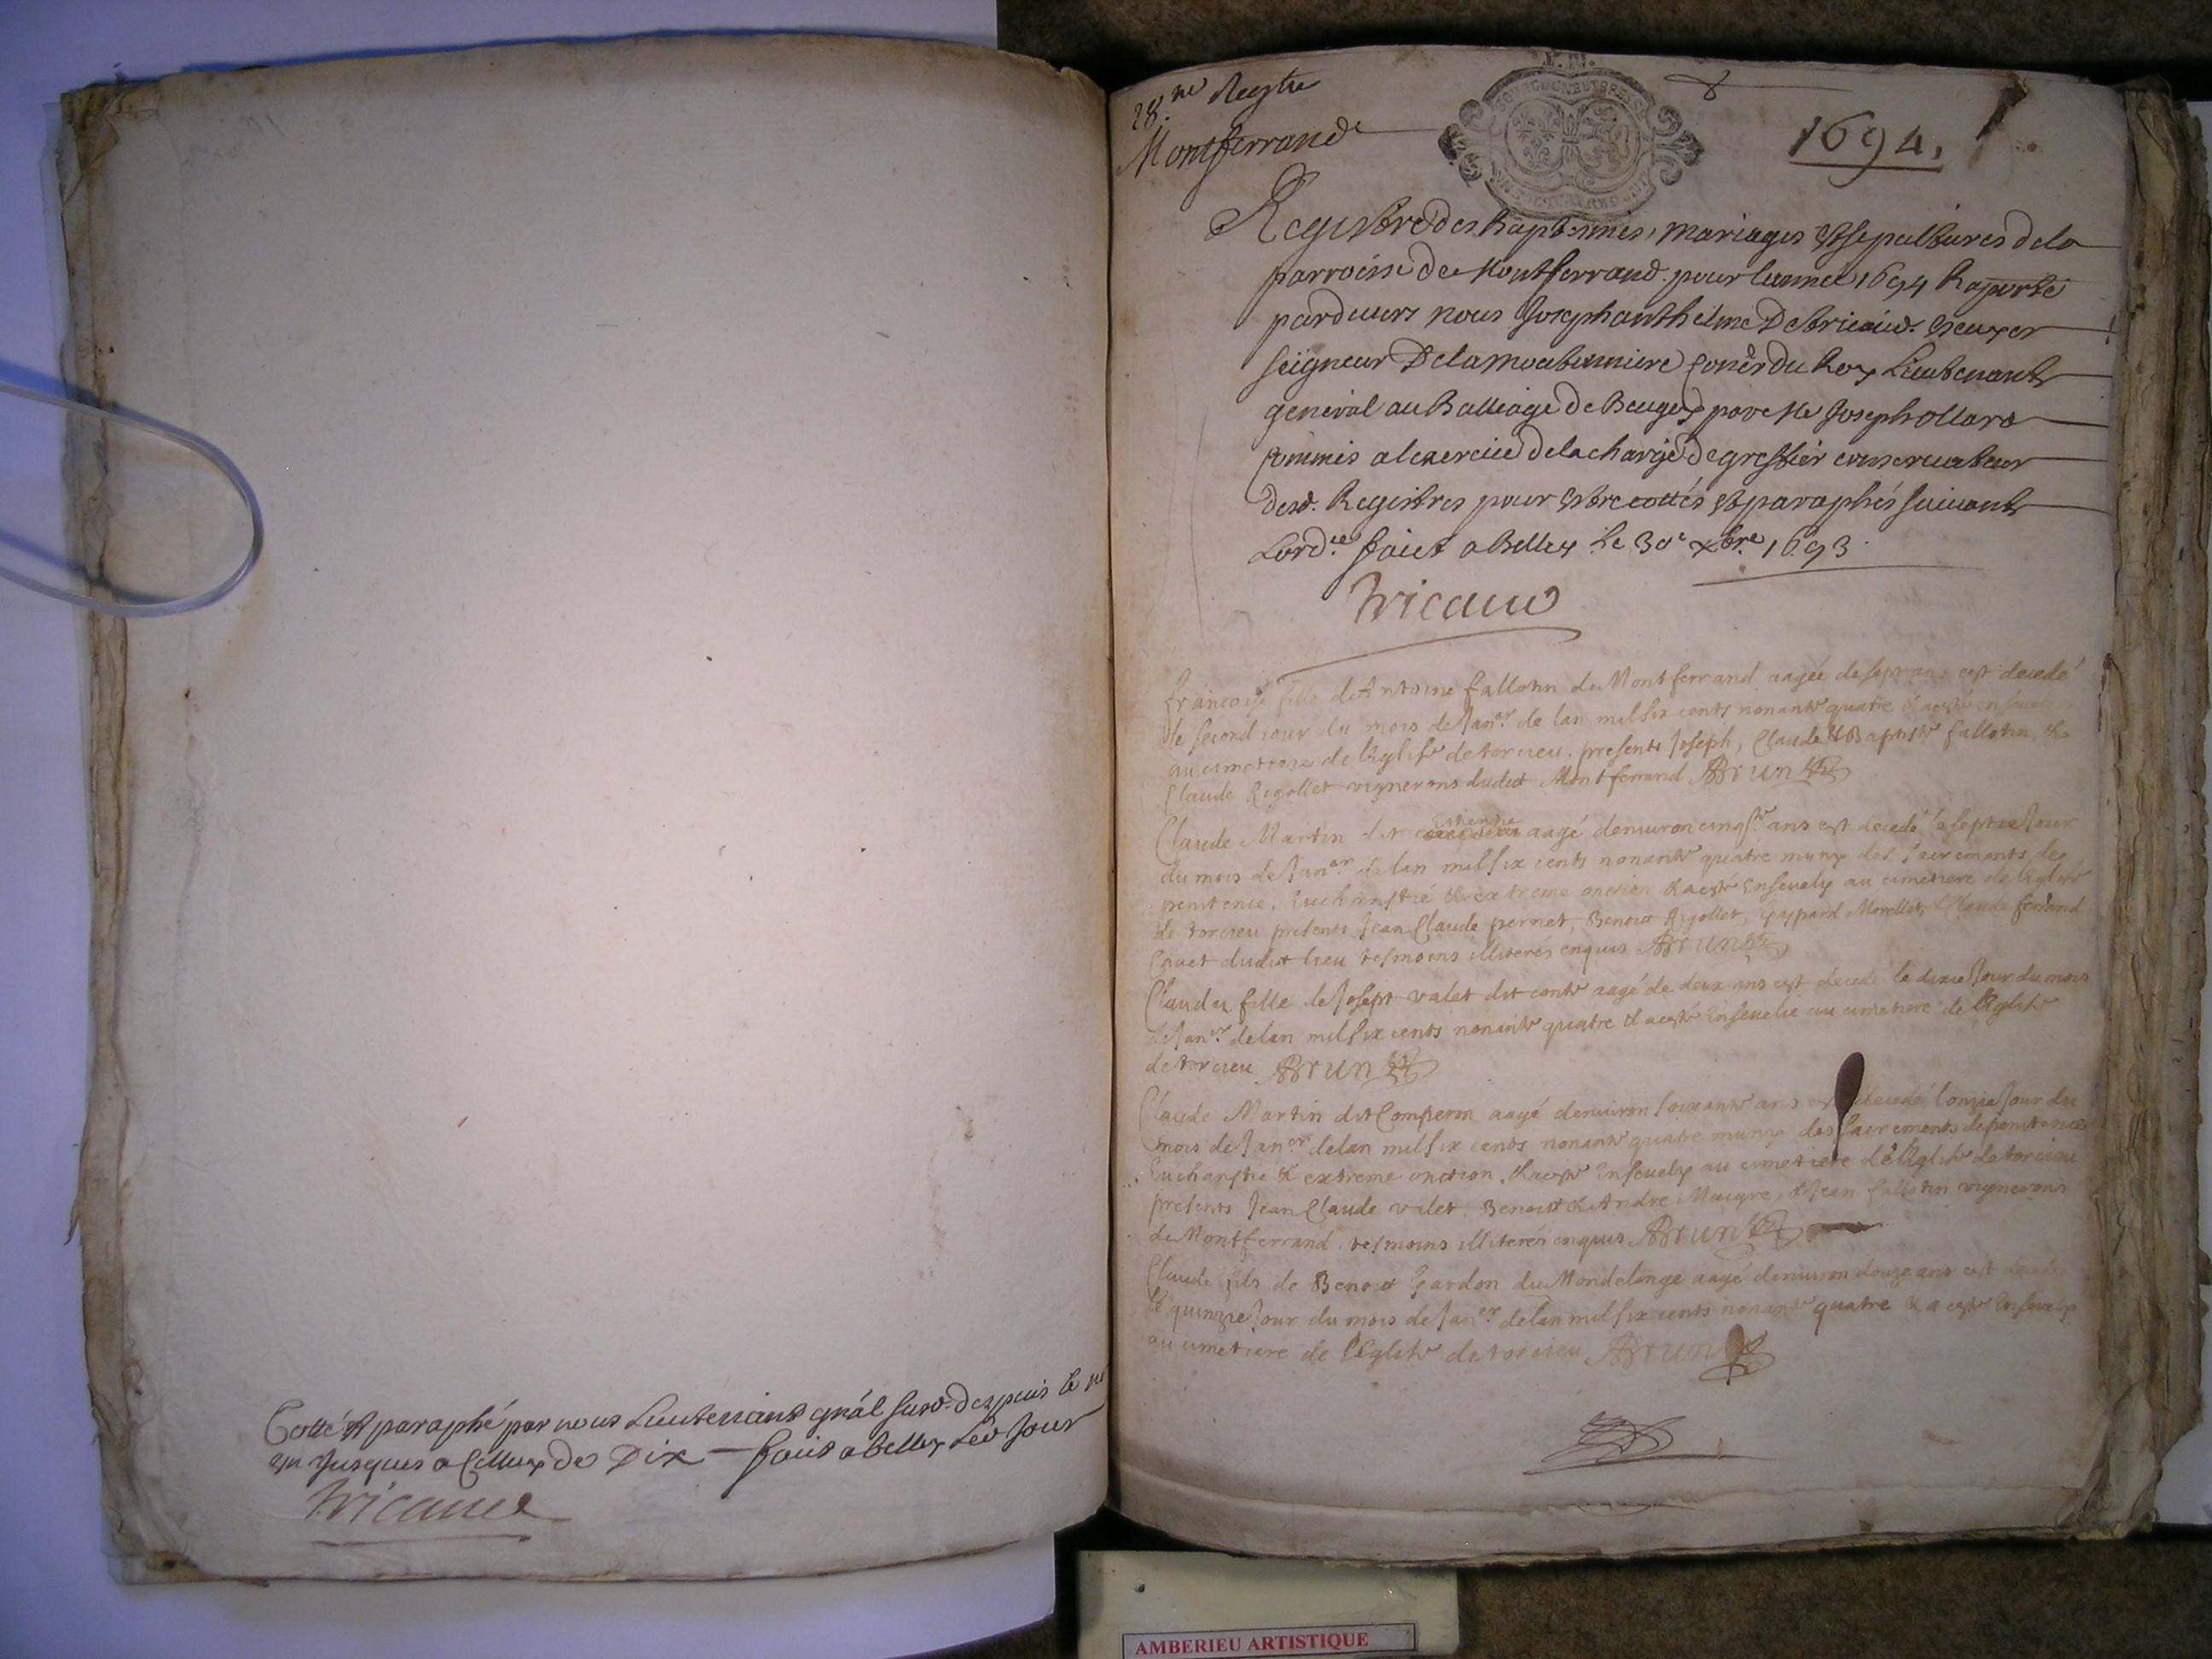 Cotté & paraphé par nous Lieutenant gnál susd. despuis le
un Jusques a Celluy de Dix — fait a belley Led Jour
Tricaud
28.me Regtre
Montferrand
1694,
Registre des Baptesmes, mariages & sepultures de la
parroisse de Montferrand pour lannee 1694 Raporté
pardevers nous Joseph anthelme De tricaud. Escuyer
seigneur De la moubonniere Conér du Roy Lieutenant
general au Balliage de Beugey par Me Joseph ollard
Commis a lexercice de la charge de greffier conservateur
desd. Registres pour Estre cottés & paraphés suivant
Lord.ce fait a Belley le 30e xbre 1693.
Tricaud
françoise fille d'Antoine fallotin de Montferrand aagée de sept ans est decedé
le second jour du mois de Janer de lan mil six cents nonante quatre & a esté
au cimetiere de l'Eglise de torcieu. presents Joseph, Claude & Baptiste fallotin, &
Claude Rigollet vignerons dudit Montferrand Brun
Claude Martin dit Estienne aagé denviron cinq.te ans est decedé le septie Jour
du mois de Janer de lan mil six cents nonante quatre muny des sacrements de
penitence, Eucharistie & extreme onction & a esté Ensevely au cimetiere de l'Eglise
de torcieu presents Jean Claude pernet, Benoit Rigollet, Gaspard Morellet, & Claude
Cavet dudit lieu tesmoins illiterés enquis Brun
Clauda fille de Josept valet dit conte aagé de deux ans est decedé le dixie Jour du mois
de Janer de lan mil six cents nonante quatre & a esté Ensevelie au cimetiere de l'Eglise
de torcieu Brun
Claude Martin dit Comperon aagé denviron soixante ans est decedé l'onzie Jour du
mois de Janer de lan mil six cents nonante quatre muny des sacrements de penitence
Eucharistie & extreme onction, & a esté Ensevely au cimetiere de l'Eglise de torcieu
presents Jean Claude valet, Benoit & Andre Maigre, & Jean fallotin vignerons
de Montferrand tesmoins illiterés enquis Brun
Claude fils de Benoit Gardon du Mondelange aagé denviron douze ans est decedé
le quinzie Jour du mois de Janer de lan mil six cents nonante quatre & a esté Ensevely
au cimetiere de l'Eglise de torcieu Brun
AMBERIEU ARTISTIQUE